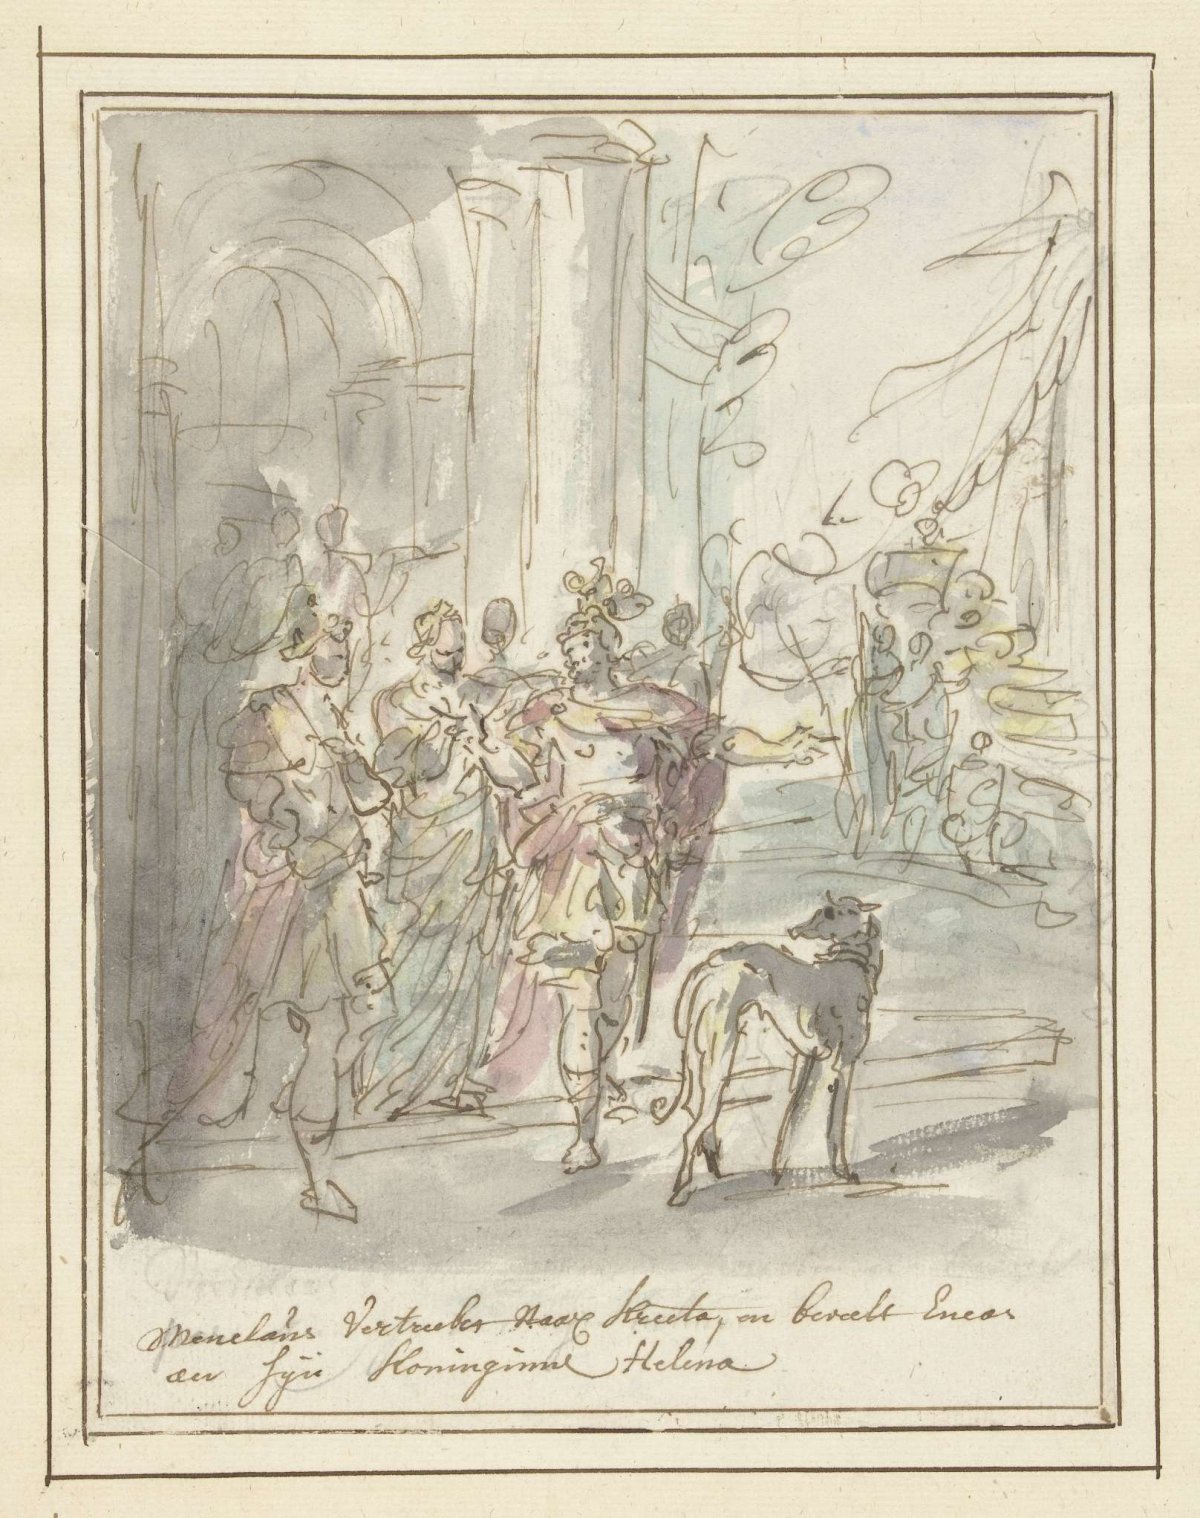 Menelaüs Vertrekt Naar Kreeta, en beveelt Eneas
aen syn Koninginne Helena